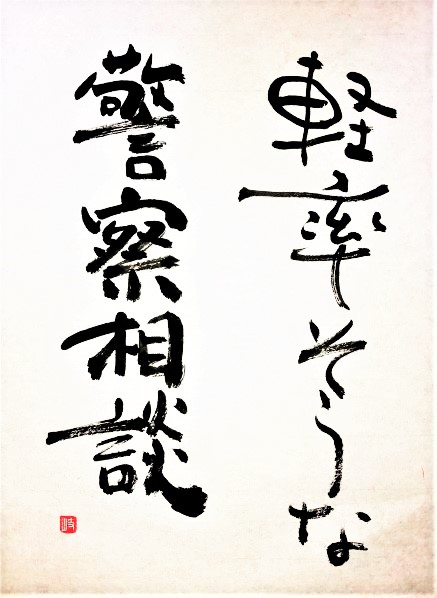 軽率そうな
警察相談